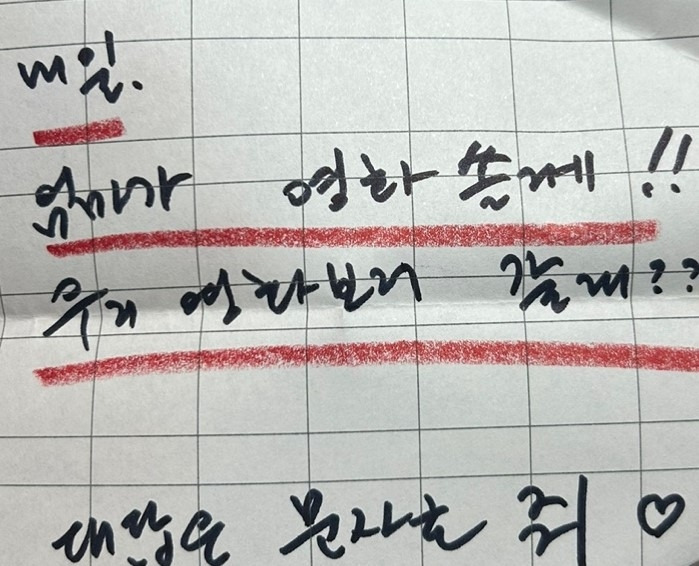 내일.
영화 쏠게!!
우리 영화보러 갈래??
대답은 문자로 줘 ♡